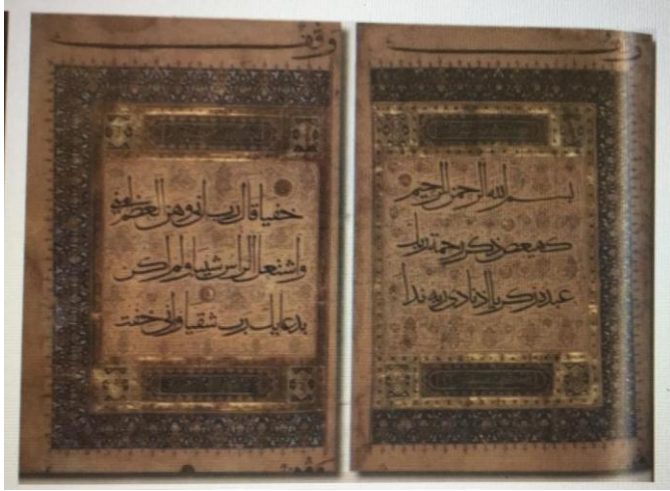 وقف
بسم الله الرحمن الرحيم
كهيعص ذكر رحمة ربك
عبده زكريا اذ نادى ربه ندا
وقف
خفيا قال رب اني وهن العظم مني
واشتعل الراس شيبا ولم اكن
بدعايك رب شقيا واني خفت